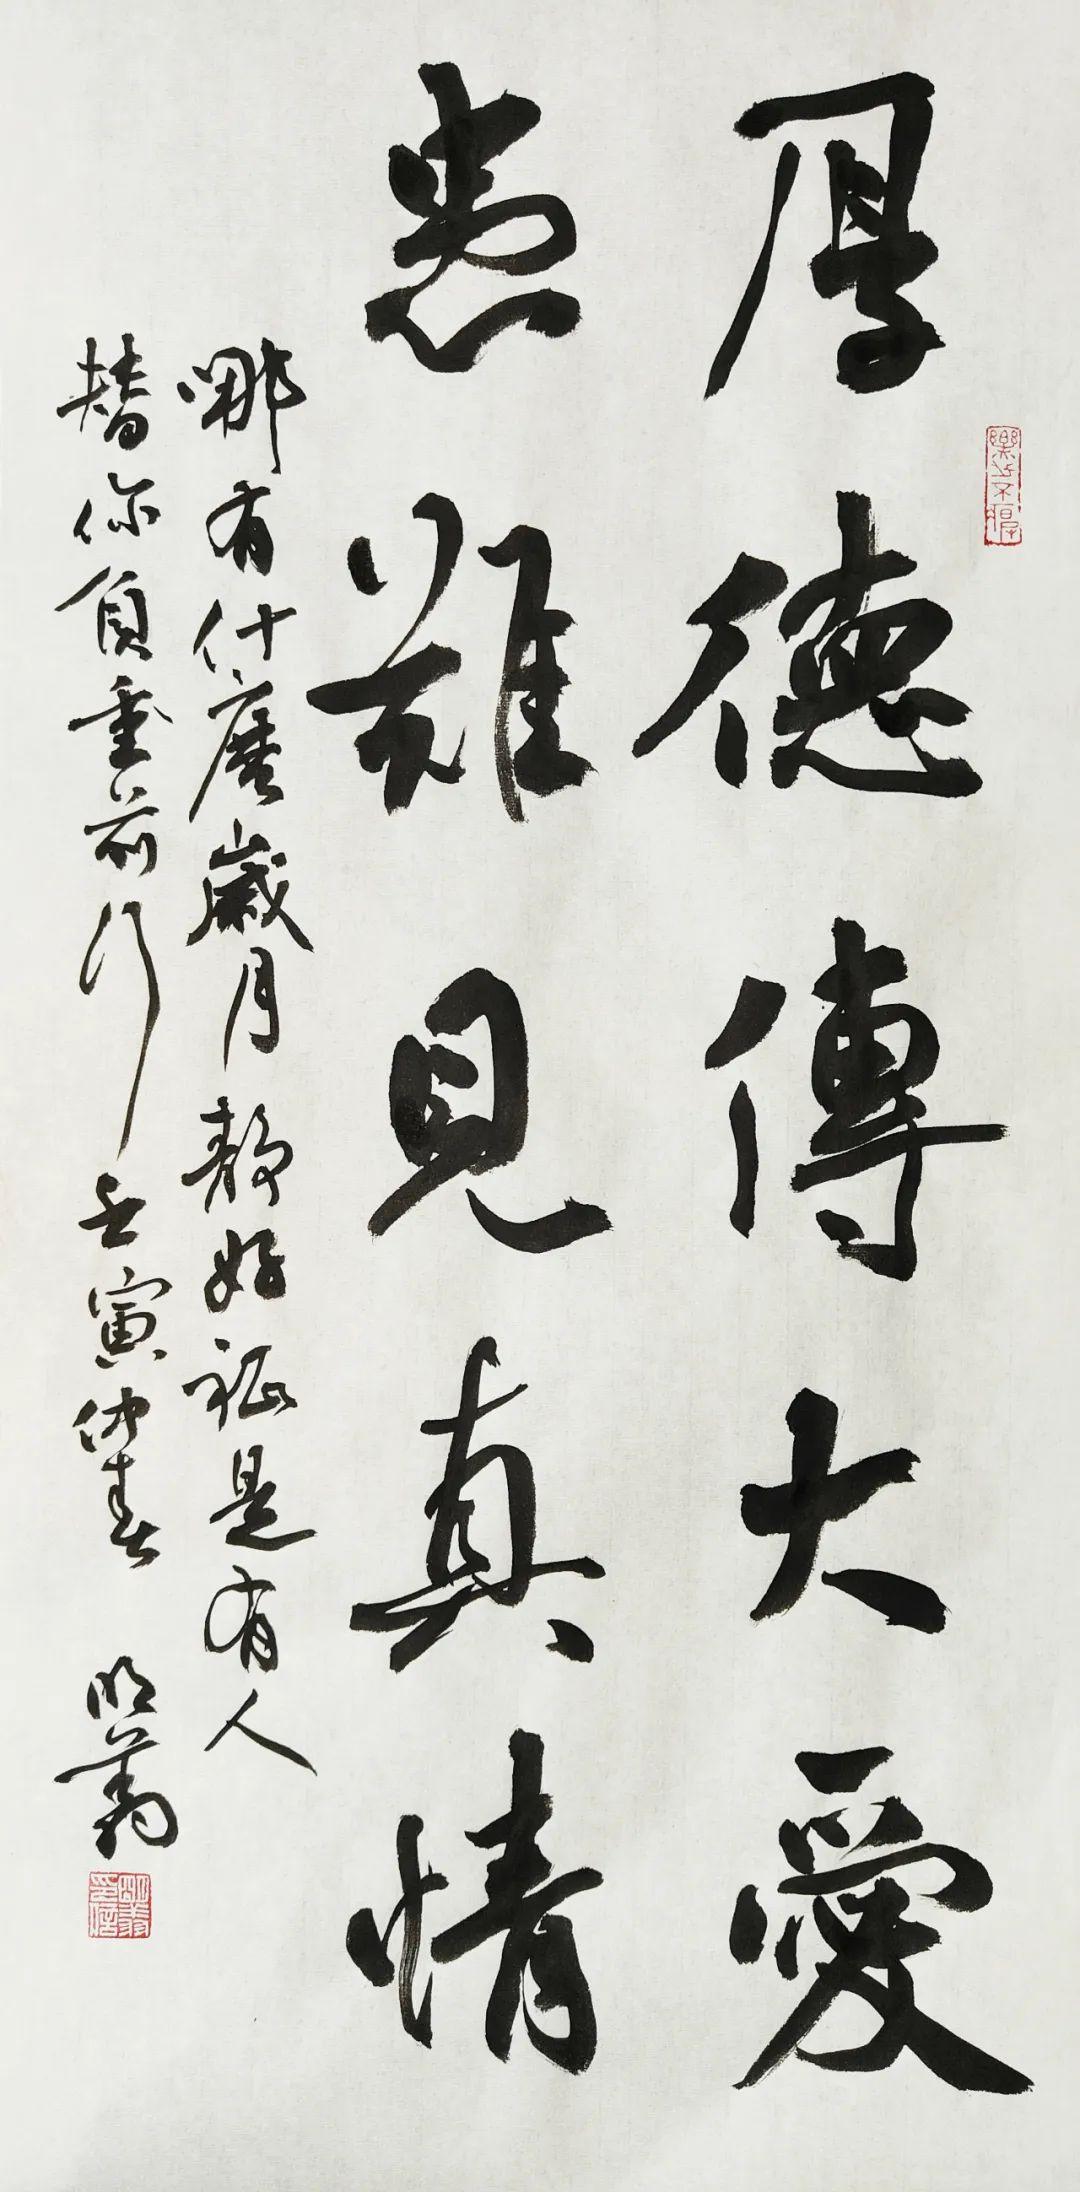 厚德傳大愛
患難見真情
哪有什麽歲月靜好祇是有人
替你負重前行 壬寅仲春 明義